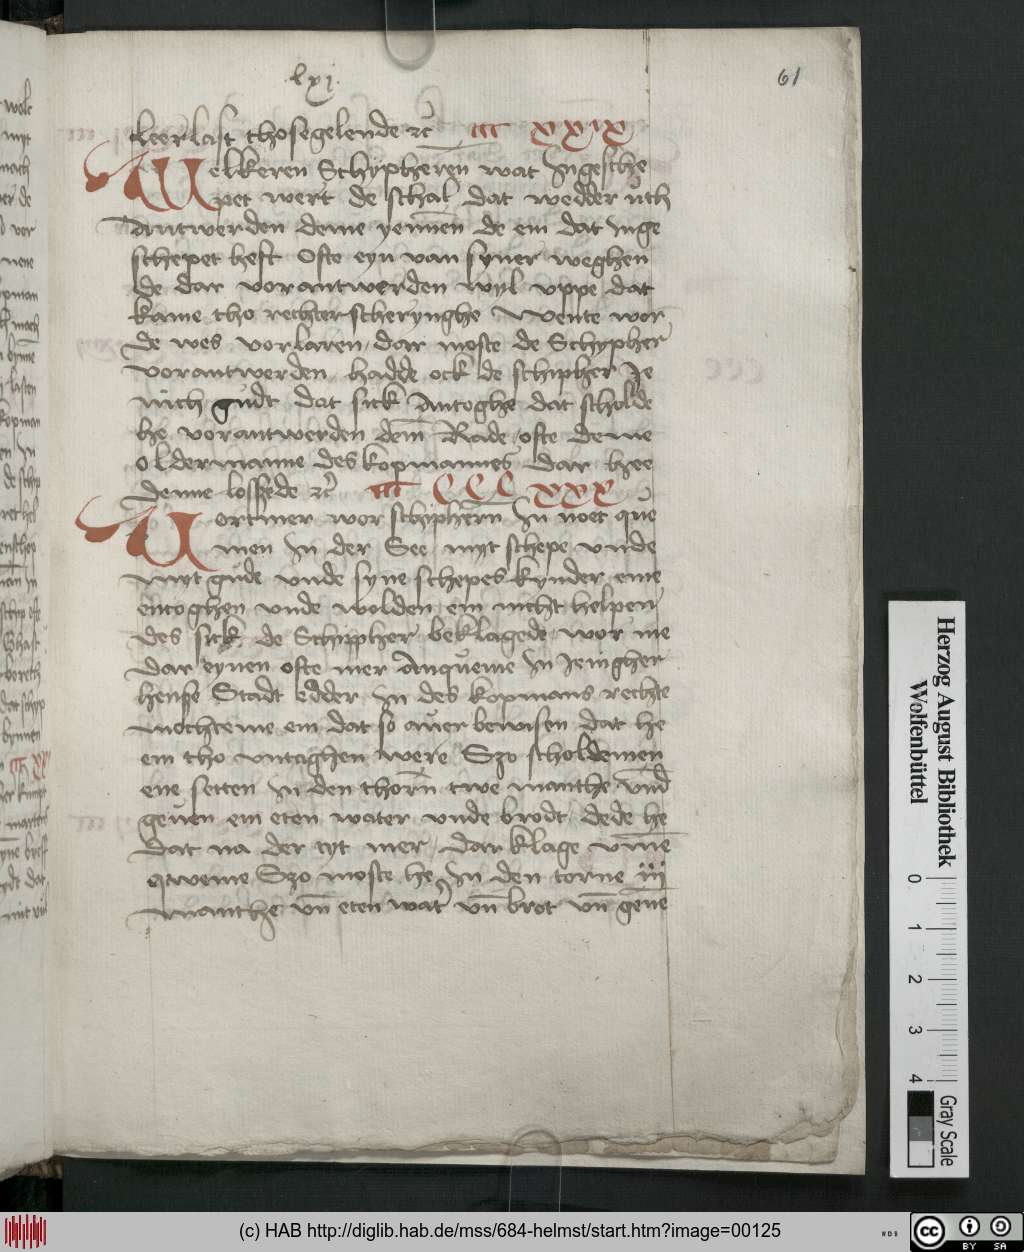 lxj
61
leer last thosegelende ꝛc̄ ccc xxix
Welkeren Schypheren wat Ingesche
pet wert de schal dat wedder uth
Antwerden deme yennen de em dat Inge
schepet heft Ofte eyn van syner weghen
de dar vorantwerden wyl vppe dat
kame tho rechter scherynghe Wente wor
de wes vorlaren dar moste de Schypher
vorantwerden hadde ock de schipher Je
nich gudt dat sick Antoghe dat scholde
he vorantwerden dem Rade ofte deme
oldermanne des kopmannes dar hee
denne lossede ꝛc̄ CCC xxx
Vortmer wor schyphern In noet que
men In der See myt schepe vnde
myt gude vnde syne schepes kynder eme
entoghen vnde wolden em nicht helpen
des sick de Schippher beklagede wor me
dar eynen ofte mer Anqueme In Jenigher
hense Stadt edder In des kopmans rechte
mochteme em dat so auer bewisen dat he
em tho vntaghen were Szo scholdemen
ene setten In den thorn twe manthe vnd
geuen em eten water vnde brodt dede he
dat na der tyt mer dar klage vme
qweme Szo moste he In den torne iiij
manthe vn̄ eten wat' vn̄ brot vn̄ geue
Herzog August Bibliothek
Wolfenbüttel
0
1
2
3
4
Gray Scale
(c) HAB http://diglib.hab.de/mss/684-helmst/start.htm?image=00125
WDB
cc BY SA